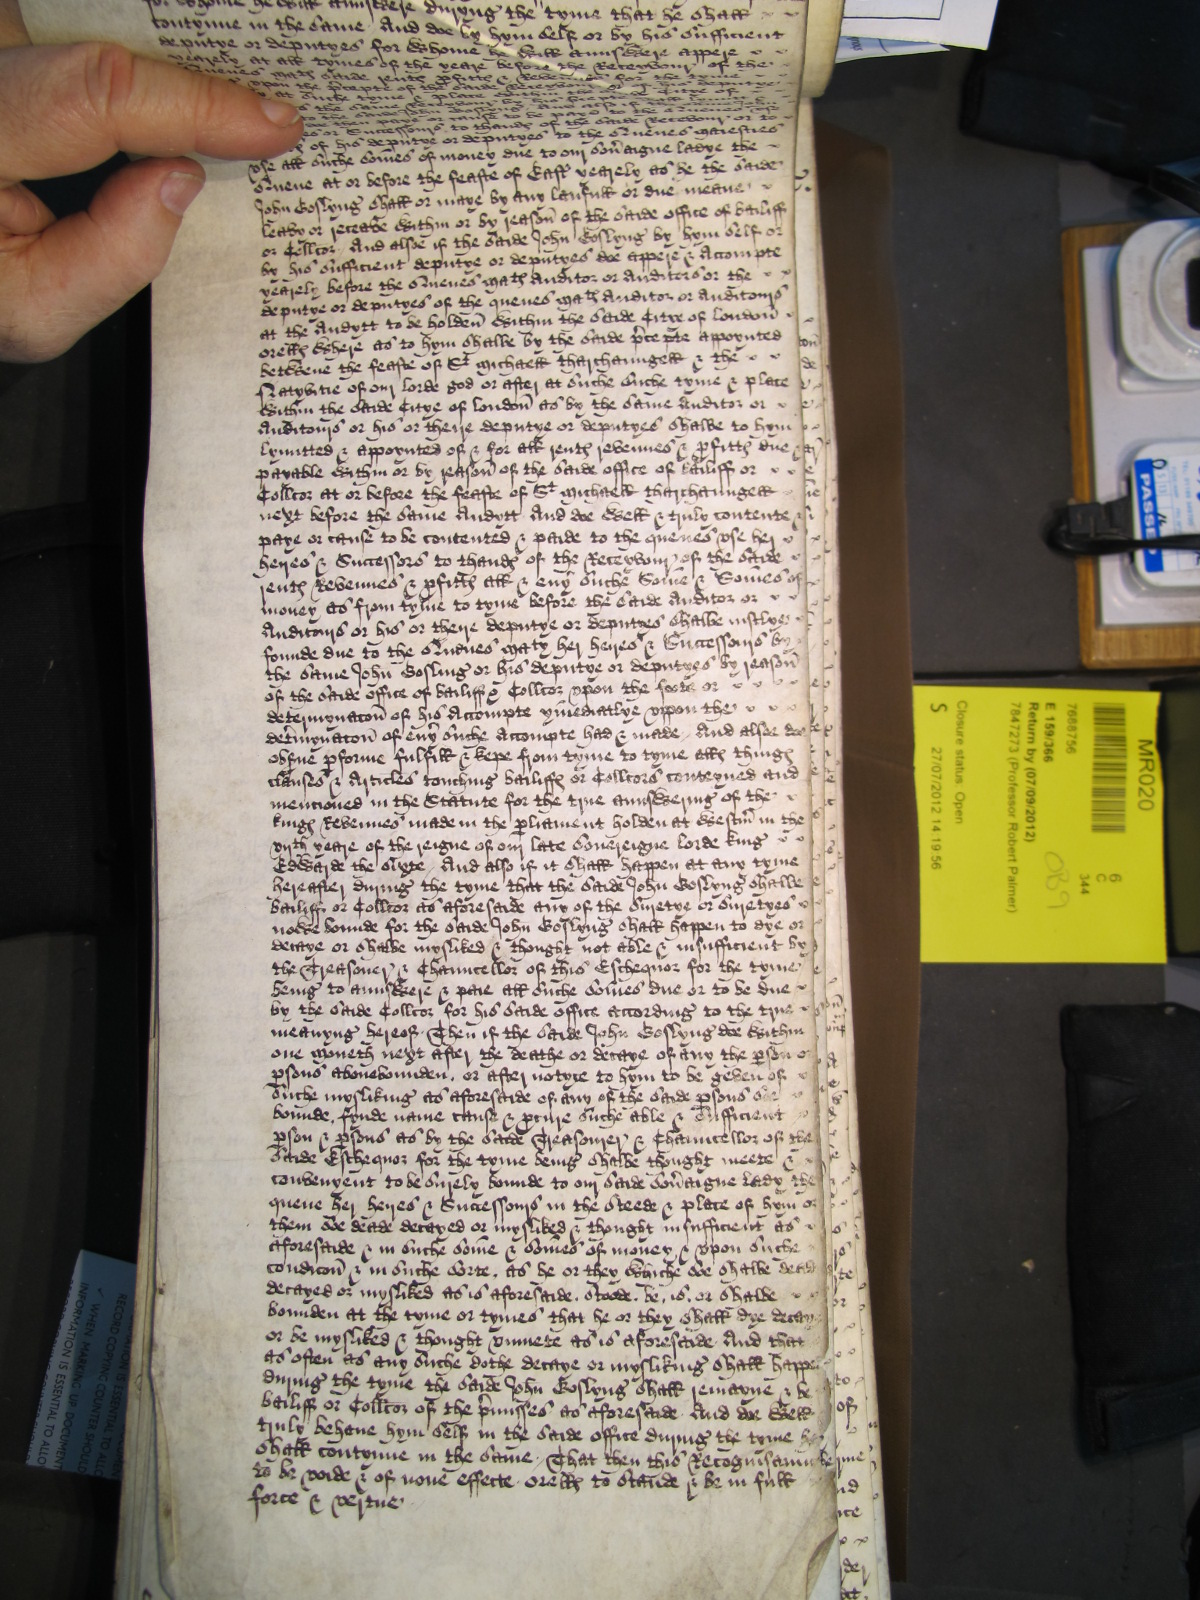 for whome he will aunswere duryng the tyme that he shall
contynue in the same And doe by hym self or by his sufficient
deputye or deputyes for whome he will aunswere appere
yearely at all tymes of the yeare before the Receyvour of the
Quenes matſ saide rentſ pfittſ & Revenues for the tyme
upon the precepte of the saide Receyvour
or Successours to thandſ of the saide Receyvour or to
of his deputye or deputyes to the Quenes maiesties
vse all suche somes of money due to our sovˀaigne ladye the
Quene at or before the feaste of Easter yearely as he the saide
John Goslyng shall or maye by any lawfull or due meane
leavy or receave within or by reason of the saide office of bailiff
or Collcor And also if the saide John Goslyng by hym self or
by his sufficient deputye or deputyes doe appere & Accompte
yearely before the Quenes matſ Auditor or Auditors or the
deputye or deputyes of the quenes matſ Auditor or Auditours
at the Audytt to be holden within the saide Citye of london
orells where as to hym shalbe by the saide pˀcepte appoynted
betwene the feaste of St michaell tharchaungell & the
Natyvitie of our lorde god or after at suche suche tyme & place
within the saide Citye of london as by the same Auditor or
Auditours or his or their deputye or deputyes shalbe to hym
lymitted & appoynted of & for all rentſ revenues & pfittſ due
payable within or by reason of the saide office of bailiff or
Collcor at or before the feaste of St michaell tharchaungell
next before the same Audytt And doe well & truly contente
paye or cause to be contented & paide to the quenes vse her
heyres & Successors to thandſ of the Receyvour of the saide
rentſ Revenues & pfittſ all & evˀy suche Some & Somes of
money as from tyme to tyme before the saide Auditor or
Auditours or his or their deputye or deputyes shalbe iustlye
founde due to the Quenes maty her heyres & Successours by
the same John Gosling or his deputye or deputyes by reason
of the saide office of bailiff & Collcor vpon the foote or
determynacon of his Accompte ymediatlye vppon the
detˀmynacon of evˀy suche Accompte had & made And alsoe doe
obsˀue pforme fulfill & kepe from tyme to tyme all thingſ
clauses & Articles touching bailiffſ or Collcors conteyned and
mentioned in the Statute for the true aunswering of the
kingſ Revenues made in the pliament holden at westm in the
viith yeare of the reigne of our late Sovereigne lorde king
Edwarde the sixte And also if it shall happen at any tyme
hereafter during the tyme that the saide John Goslyng shalbe
bailiff or Collcor as aforesaide any of the suretye or suretyes
nowe bounde for the saide John Goslyng shall happen to dye or
decaye or shalbe mysliked & thought not able & insufficient by
the Treasorer & Chauncellor of this Eschequor for the tyme
being to aunswere & paie all suche somes due or to be due
by the saide Collcor for his saide office according to the true
meanyng hereof Then if the saide John Goslyng doe within
one moneth next after the deathe or decaye of any the pson or
psons abovebounden, or after notyce to hym to be geven of
suche mysliking as aforesaide of any of the saide psons soe
bounde, fynde name cause & pcure suche able & sufficient
pson & psons as by the saide Treasorer & Chauncellor of the
saide Eschequor for the tyme being shalbe thought meete &
convenyent to be surely bounde to our saide sovˀaigne lady the
quene her heyres & Successours in the steede & place of hym or
them soe deade decayed or mysliked & thought insufficient as
aforesaide & in suche some & somes of money & vpon suche
condicon & in suche sorte, as he or they whiche soe shalbe dead
decayed or mysliked as is aforesaide, stoode, be, is, or shalbe
bounden at the tyme or tymes that he or they shall dye decay
or be mysliked & thought vnmete as is aforesaide And that
as often as any suche dothe decaye or mysliking shall happen
during the tyme the saide John Goslyng shall remayne & be
bailiff or Collcor of the pˀmisses as aforesaide And doe well
truly behave hym self in the saide office during the tyme he
shall contynue in the same That then this Recognisaunce
to be voide & of none effecte orells to stande & be in full
force & vertue
MR020
6
C
344
7688756
E 159/366
Return by (07/09/2012)
7847273 (Professor Robert Palmer)
Closure status: Open
S 27/07/2012 14:19:56
089
PASSE
RECORD COPYING COUNTER SHOULD
WHEN MARKING UP DOCUMENT
INFORMATION IS ESSENTIAL TO ALLO